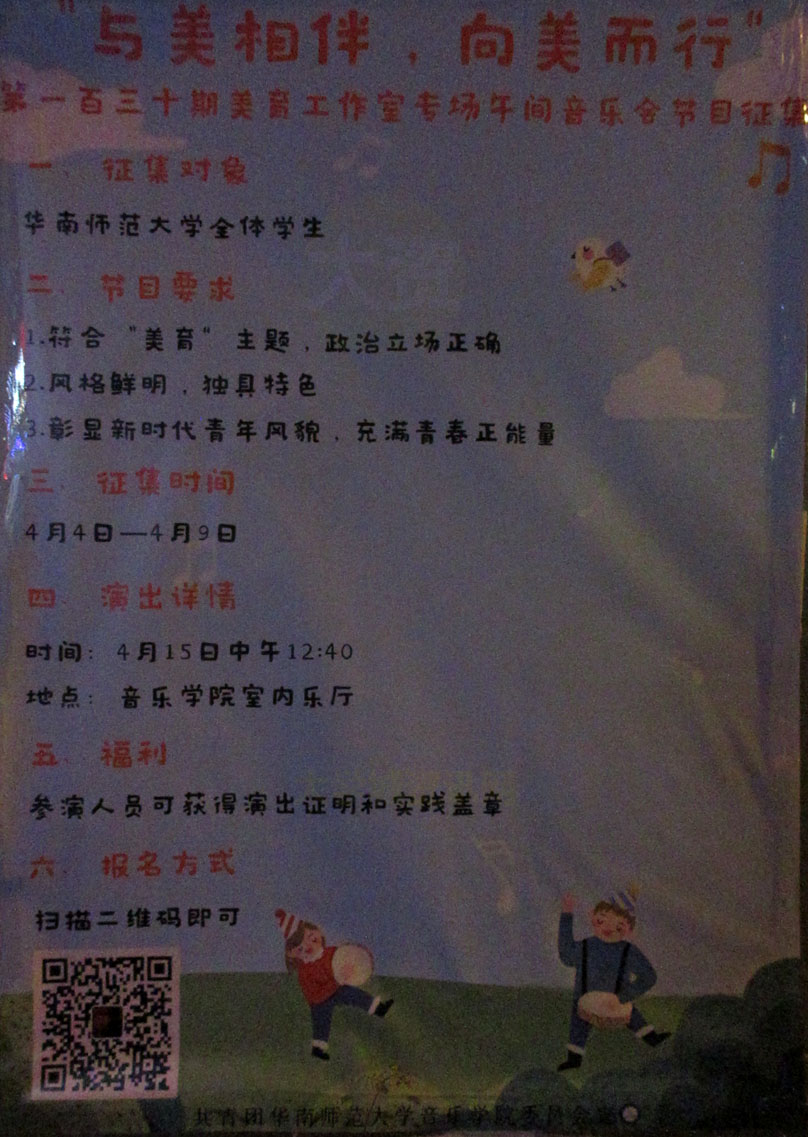 "与美相伴，向美而行"
第一百三十期美育工作室专场午间音乐会节目征集
一、征集对象
华南师范大学全体学生
二、节目要求
1.符合"美育"主题，政治立场正确
2.风格鲜明，独具特色
3.彰显新时代青年风貌，充满青春正能量
三、征集时间
4月4日—4月9日
四、演出详情
时间：4月15日中午12:40
地点：音乐学院室内乐厅
五、福利
参演人员可获得演出证明和实践盖章
六、报名方式
扫描二维码即可
共青团华南师范大学音乐学院委员会